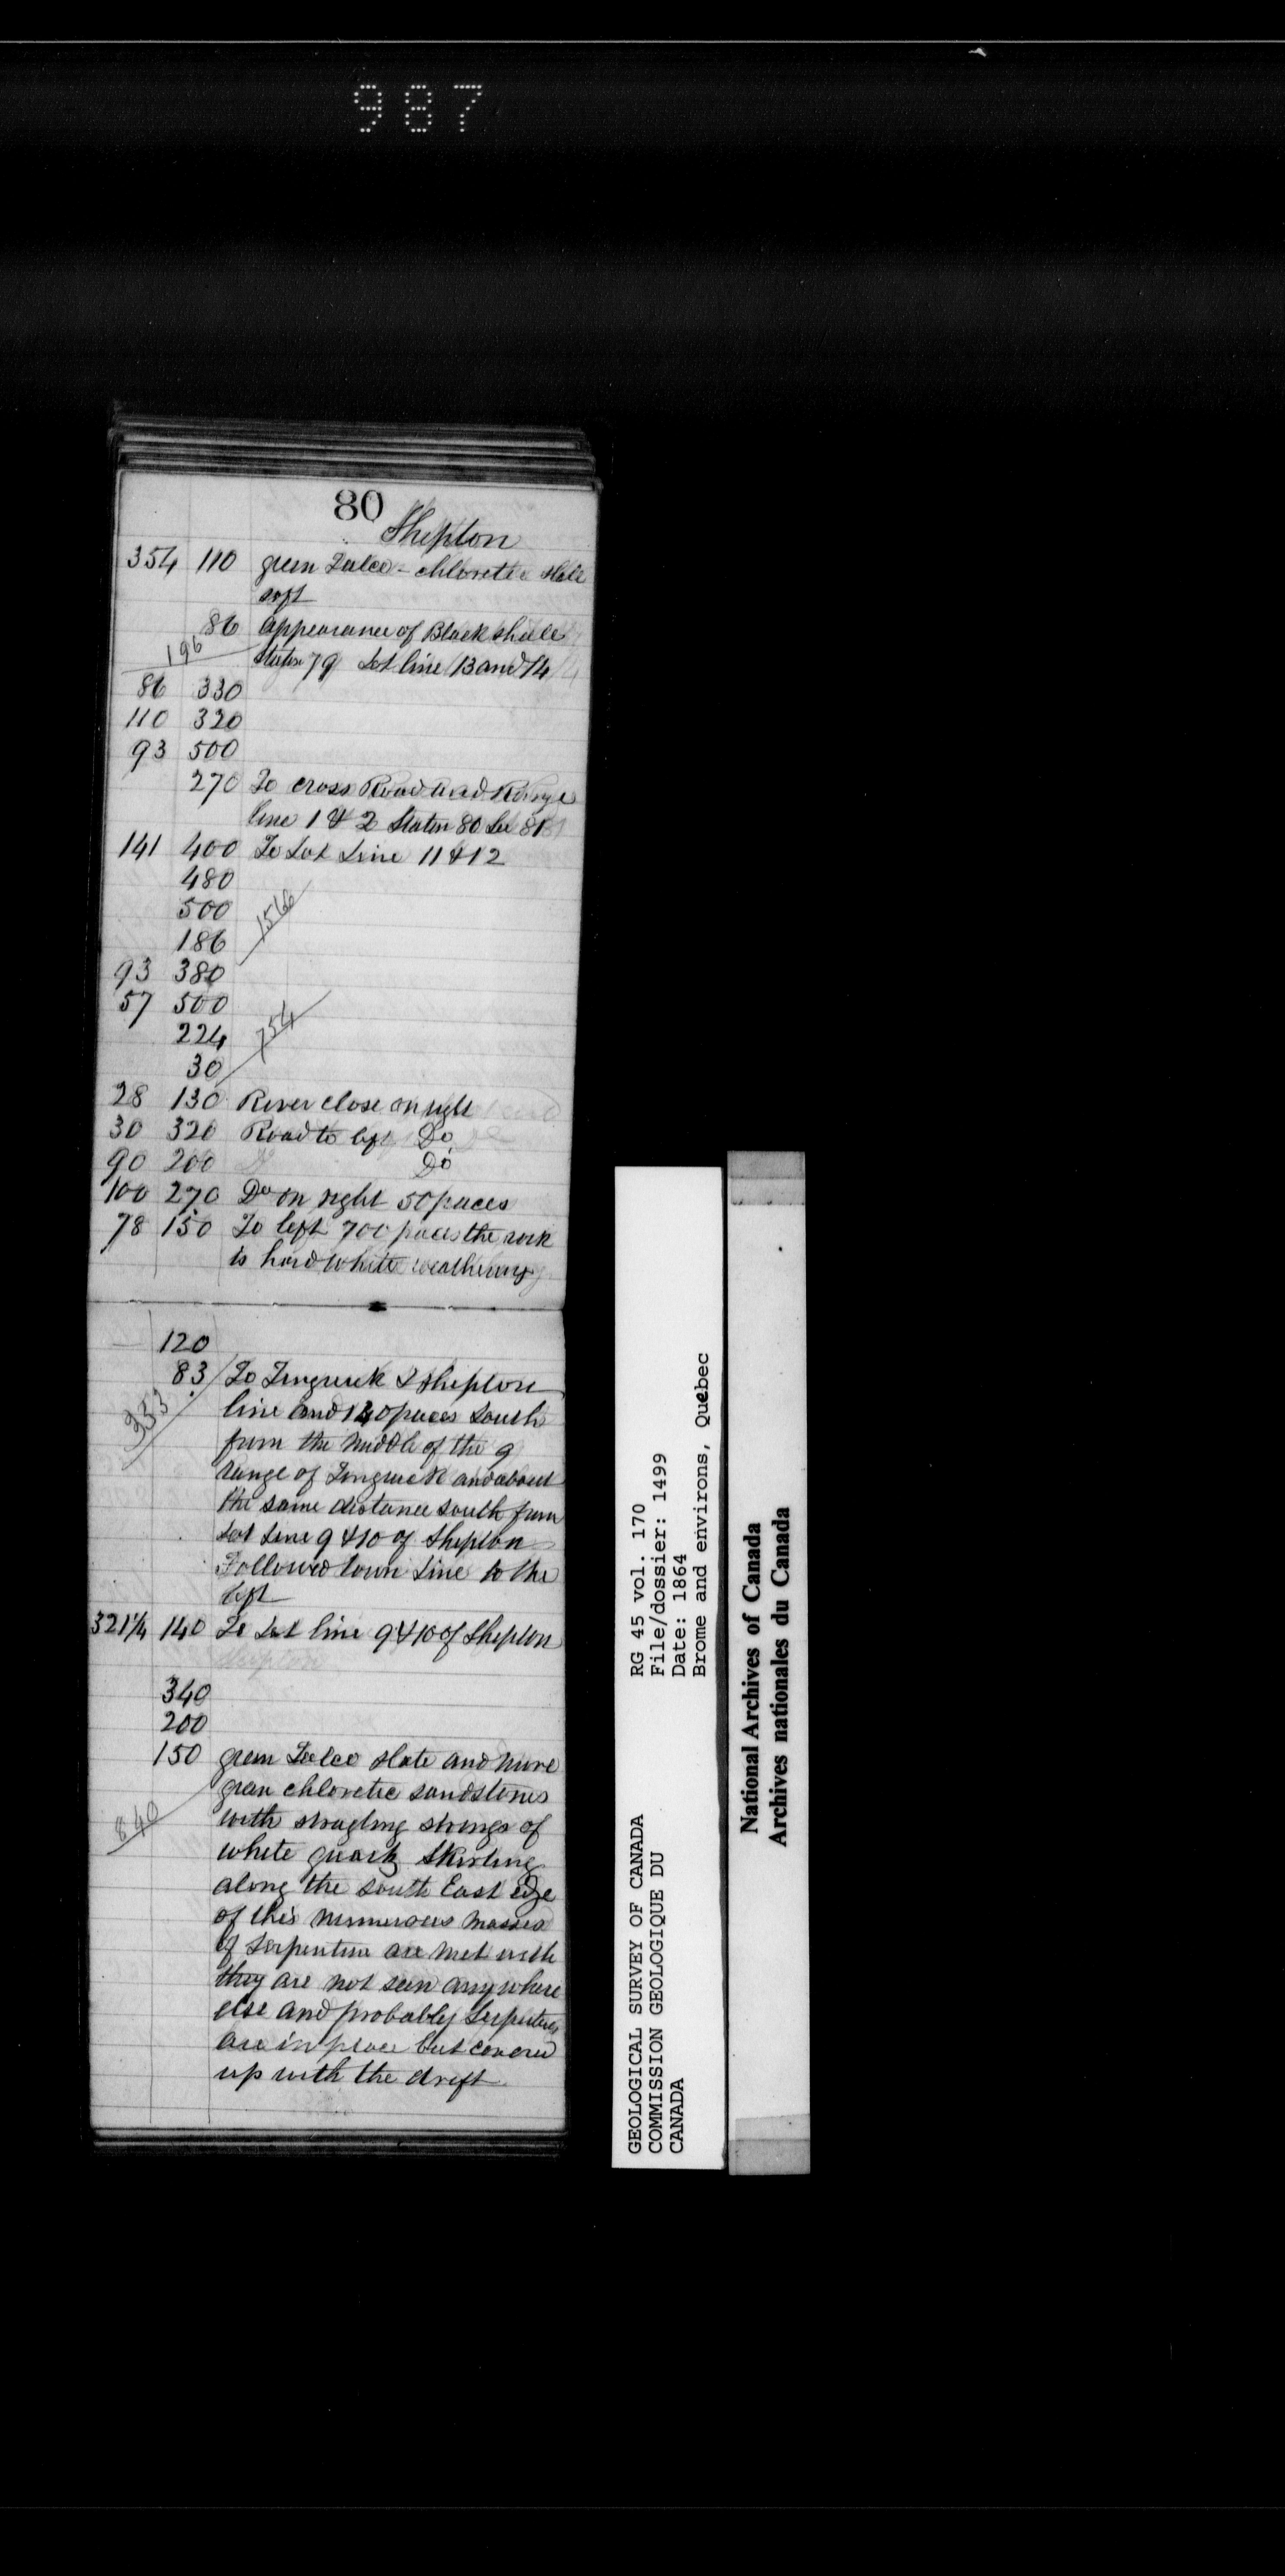 987
80
Shipton
354 110 green Talco - chloretic slate
soft
86 appearance of Black shale
196
Station 79 Lot line 13 and 14
86 330
110 320
93 500
270 To cross Road and Range
line 1 & 2 Staton 80 See 81
141 400 To Lot Line 11 & 12
480
500
1566
186
93 380
57 500
224
754
30
28 130 River close on right
30 320 Road to left Do
90 200 Do
100 270 Do on right 50 paces
78 150 To left 700 paces the rock
is hard white weathering
120
83 To Tingwick & Shipton
353
line and 130 paces South
from the middle of the 9
range of Tingwick and about
the same distance south from
Lot Line 9 & 10 of Shipton
Followed town Line to the
left
321¼ 140 To Lot line 9 & 10 of Shipton
340
200
150 green Talco slate and more
green chloretic sandstones
840
with stragling strings of
white quartz Skirting
along the south East edge
of this numerous masses
of Serpentine are met with
they are not seen anywhere
else and probably Serpentines
are in place but covered
up with the drift
GEOLOGICAL SURVEY OF CANADA
COMMISSION GEOLOGIQUE DU
CANADA
RG 45 vol. 170
File/dossier: 1499
Date: 1864
Brome and environs, Quebec
National Archives of Canada
Archives nationales du Canada